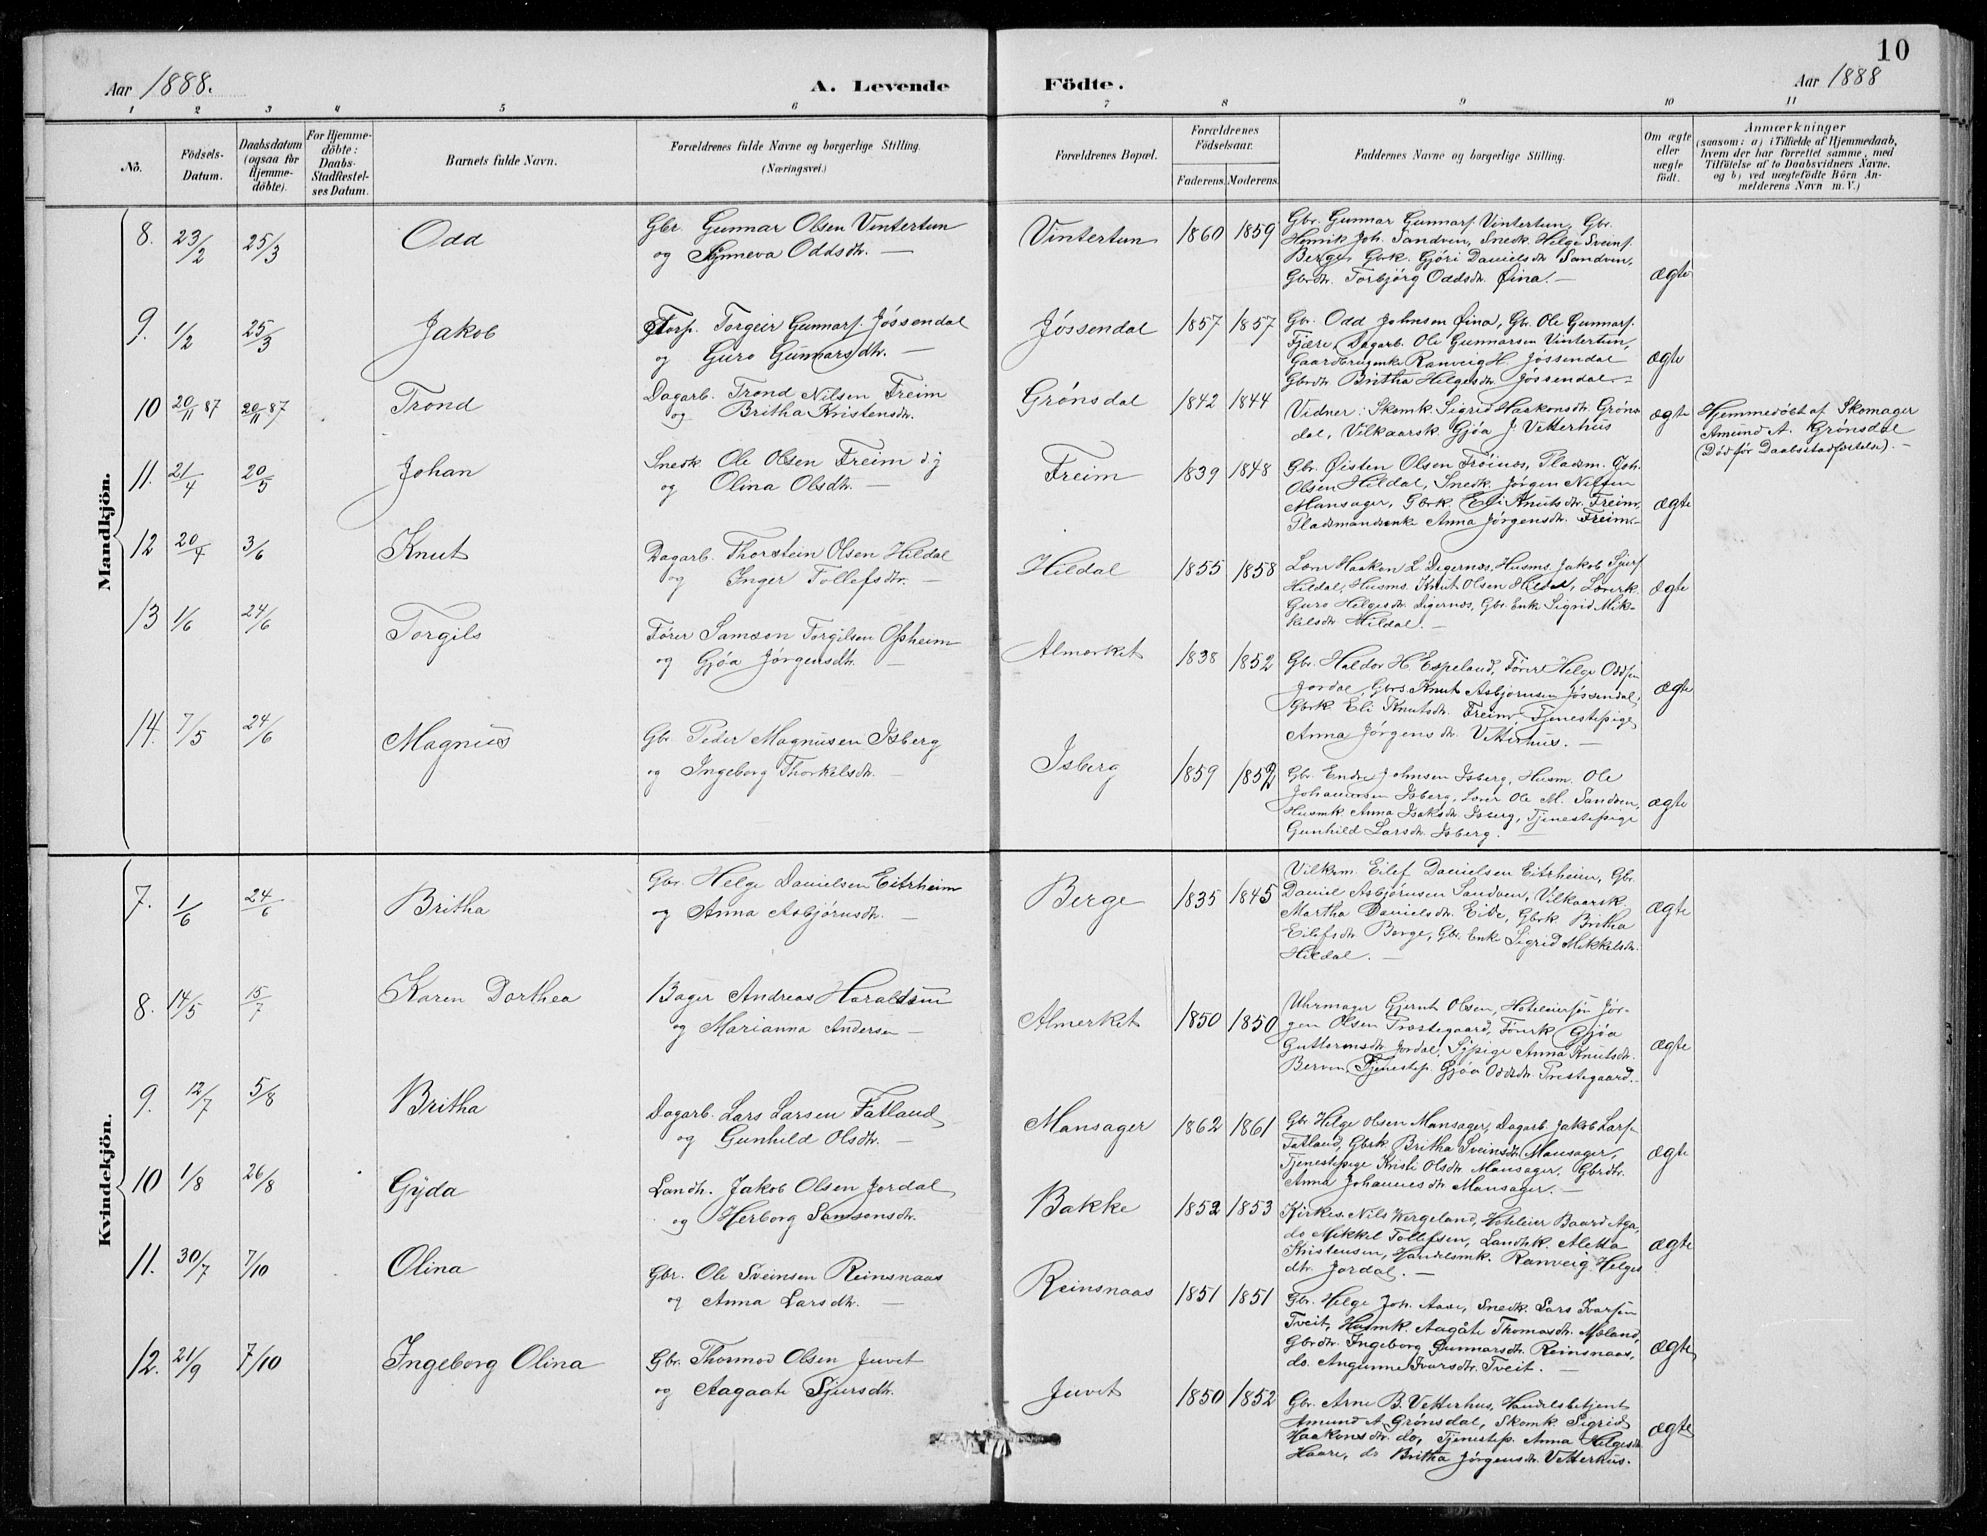 10
Aar 1888.
A. Levende
Födte.
Aar 1888
1 2 3 4 5 6 7 8 9 10 11
No.
Födsels-
Datum.
Daabsdatum
(ogsaa for
Hjemme-
döbte).
For Hjemme-
döbte:
Daabs-
Stadfæstel-
ses Datum.
Barnets fulde Navn.
Forældrenes fulde Navne og borgerlige Stilling.
(Næringsvei.)
Forældrenes Bopæl.
Forældrenes
Födselsaar.
Faderens. Moderens.
Faddernes Navne og borgerlige Stilling.
Om ægte
eller
uægte
födt.
Anmærkninger
(saasom: a) i Tilfælde af Hjemmedaab,
hvem der har forrettet samme, med
Tilföielse af to Daabsvidners Navne.
og b) ved uægtefödte Börn An-
melderens Navn m. V.)
Mandkjön.
8. 23/2 25/3 Odd
Gbr. Gunnar Olsen Vintertun
og Synneva Oddsdtr. —
Vintertun 1860 1859
Gbr. Gunnar Gunnars. Vintertun, Gbr.
Henrik Joh. Sandven, Snedk. Helge Sveins.
Berge, Gbrk. Gjøri Danielsdtr. Sandven,
Gbrdtr. Torbjørg Oddsdtr. Øina. —
ægte
9. 1/2 25/3 Jakob
Forp. Torgeir Gunnars. Jössendal
og Guro Gunnarsdtr. —
Jössendal 1857 1857
Gbr. Odd Johnsen Øina, Gbr. Ole Gunnars.
Fjære, Dagarb. Ole Gunnarsen Vintertun,
Gaardbrugenke Ranveig H. Jössendal
Gbrdtr. Britha Helgesdtr. Jössendal. —
ægte
10 20/11 87 20/11 87 Trond
Dagarb. Trond Nilsen Freim
og Britha Kristensdtr.
Grønsdal 1842 1844
Vidner: Skomk. Sigrid Haakonsdtr. Grøns-
dal, Vilkaarsk. Gjøa J. Vetterhus
ægte
Hjemmedöbt af Skomager
Amund A. Grønsdal
(Död för Daabsstadfæstelse). —
11. 21/4 20/5 Johan
Snedk. Ole Olsen Freim d.y
og Olina Olsdtr. —
Freim 1839 1848
Gbr. Øisten Olsen Frøinæs, Pladsm. Joh.
Olsen Hildal, Snedk. Jørgen Nilsen
Mansager, Gbrk. Eli Knutsdtr. Freim,
Pladsmandsenk Anna Jørgensdtr. Freim. —
ægte
12 20/4 3/6 Knut
Dagarb. Thorstein Olsen Hildal
og Inger Tollefsdtr. —
Hildal 1855 1858
Lærer Haaken L. Digernes, Husms. Jakob Sjurs.
Hildal, Husms. Knut Olsen Hildal, Lærerk.
Guro Helgesdtr. Digernes, Gbr. Enke Sigrid Mik-
kelsdtr. Hildal. —
ægte
13 1/6 24/6 Torgils
Fører Samson Torgilsen Opheim
og Gjøa Jørgensdtr. —
Almerket 1838 1852
Gbr. Haldor H. Espeland, Fører Helge Oddsen
Jordal, Gbrs. Knut Asbjørnsen Jössendal,
Gbrk. Eli Knutsdtr. Freim, Tjenestepige
Anna Jørgensdtr. Vetterhus. —
ægte
14. 7/5 24/6 Magnus
Gbr. Peder Magnusen Isberg
og Ingeborg Thorkelsdtr. —
Isberg 1859 1852
Gbr. Endre Johnsen Isberg, Husm. Ole
Johannesen Isberg, Lærer Ole M. Sandven,
Husmk. Anna Isaksdtr. Isberg, Tjenestepige
Gunhild Larsdtr. Isberg. —
ægte
Kvindekjön.
7. 1/6 24/6 Britha
Gbr. Helge Danielsen Eitrheim
og Anna Asbjørnsdtr. —
Berge 1835 1845
Vilkm. Eilef Danielsen Eitrheim, Gbr.
Daniel Asbjørnsen Sandven, Vilkaarsk.
Martha Danielsdtr. Eide, Gbrk. Britha
Eilefsdtr. Berge, Gbr. Enke Sigrid Mikkelsdtr.
Hildal. —
ægte
8. 14/5 15/7 Karen Dorthea
Bager Andreas Haraldsen
og Marianna Andersen —
Almerket 1850 1850
Uhrmager Gjernt Olsen, Hoteleiersøn Jør-
gen Olsen Præstegaard, Førerk. Gjøa
Guttormsdtr. Jordal, Sypige Anna Knutsdtr.
Berven, Tjenestep. Gjøa Oddsdtr. Prestegaard. —
ægte
9. 12/7 5/8 Britha
Dagarb. Lars Larsen Fatland
og Gunhild Olsdtr. —
Mansager 1862 1861
Gbr. Helge Olsen Mansager, Dagarb. Jakob Lars.
Fatland, Gbrk Britha Sveinsdtr. Mansager,
Tjenestepige Kristi Olsdtr. Mansager, Gbrdtr.
Anna Johannesdtr. Mansager. —
ægte
10 1/8 26/8 Gyda
Landh. Jakob Olsen Jordal
og Herborg Samsonsdtr.
Bakke 1852 1853
Kirkes. Nils Wergeland, Hoteleier Baard Aga,
do Mikkel Tollefsen, Landhk. Aletta
Kristensen, Handelsmk. Ranveig Helges
dtr. Jordal. —
ægte
11. 30/7 7/10 Olina
Gbr. Ole Sveinsen Reinsnaas
og Anna Larsdtr. —
Reinsnaas 1851 1851
Gbr. Helge Joh. Aase, Snedk. Lars Ivarsen
Tveit, Husmk. Aagåte Thomasdtr. Mæland,
Gbrdtr. Ingeborg Gunnarsdtr. Reinsnaas,
do. Angunne Ivarsdtr. Tveit. —
ægte
12. 21/9 7/10 Ingeborg Olina
Gbr. Thormod Olsen Juvet
og Aagaate Sjursdtr.
Juvet 1850 1852
Gbr. Arne B. Vetterhus, Handelsbetjent
Amund A. Grønsdal, Skomk. Sigrid
Haakonsdtr. do, Tjenestep. Anna Helgesdtr.
Haare, do Britha Jørgensdtr. Vetterhus.
ægte